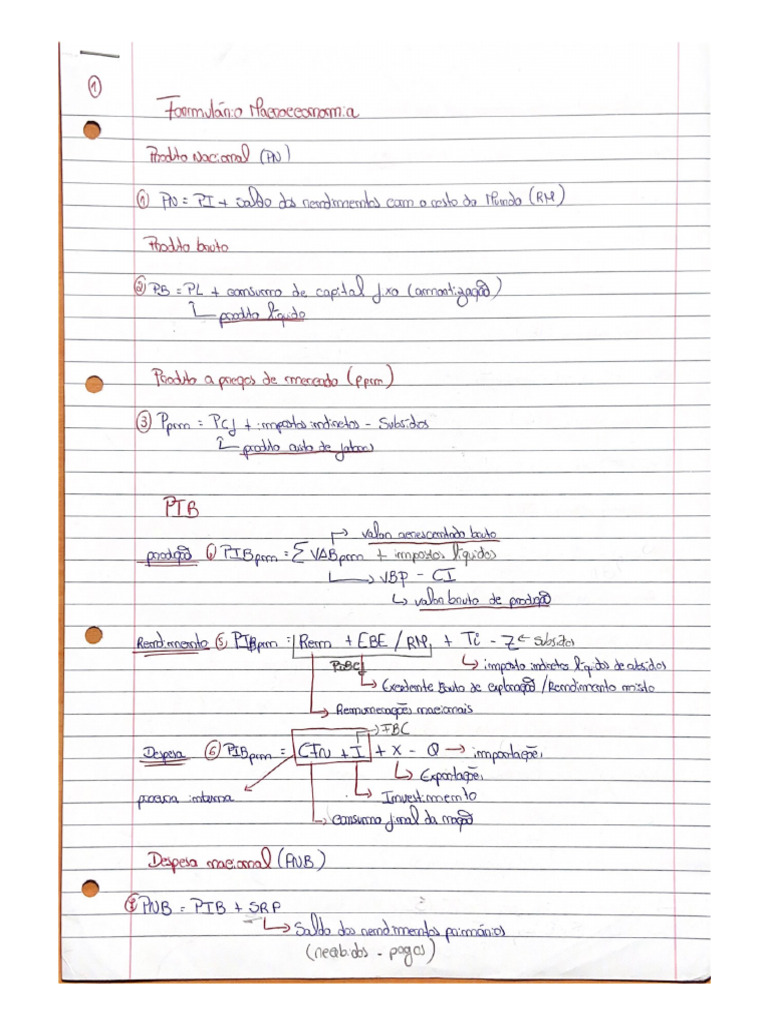 ①
Formulário Macroeconomia
Produto Nacional (PN)
① PN = PI + saldo dos rendimentos com o resto do Mundo (RM)
Produto bruto
② PB = PL + consumo de capital fixo (amortização)
produto líquido
Produto a preços de mercado (Ppm)
③ Ppm = PCf + impostos indiretos - Subsídios
produto custo de fatores
PIB
valor acrescentado bruto
produção PIBpm = Σ VABpm + impostos líquidos
VBP - CI
valor bruto de produção
Rendimento ⑤ PIBpm = Rem + EBE / RM + Ti - Z ← Subsídios
imposto indiretos líquidos de subsídios
Excedente Bruto de exploração / Rendimento misto
Remunerações nacionais
FBC
Despesa ⑥ PIBpm = CFN + I + X - Q → importações
Exportações
procura interna
Investimento
consumo final da nação
Despesa nacional (PNB)
PNB = PIB + SRP
Saldo dos rendimentos primários
(recebidos - pagos)